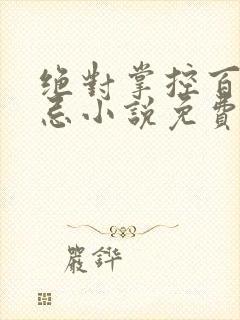 绝對掌控百
忌小說免費
嚴鏵